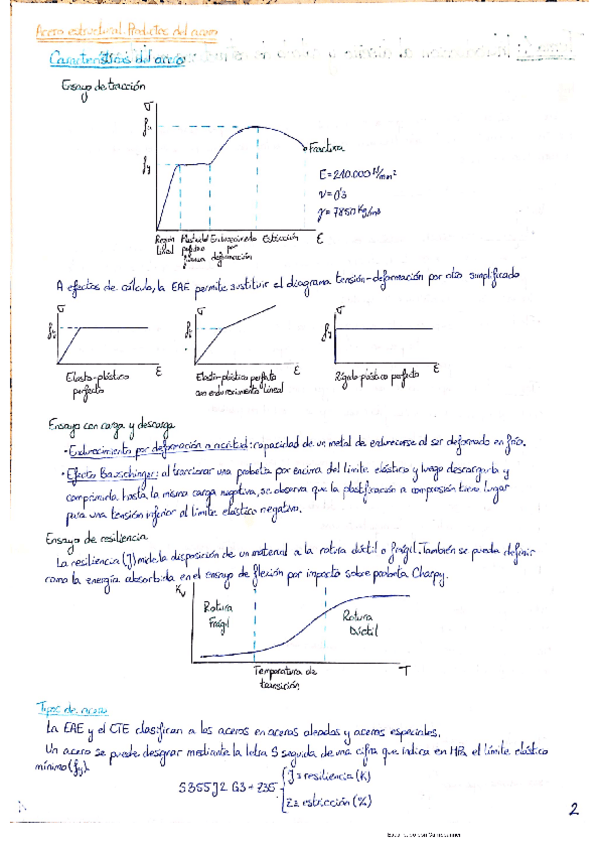 Acero estructural. Productos del acero
Características del acero
Ensayo de tracción
σ
fu
fy
Fractura
E=210.000 N/mm²
ν=0'3
γ=7850 Kg/m3
Región Plasticidad Endurecimiento Estricción ε
lineal perfecta por
deformación
A efectos de cálculo, la EAE permite sustituir el diagrama tensión-deformación por otro simplificado
σ σ σ
fy fy fy
ε ε ε
Elasto-plástico
perfecto
Elasto-plástico perfecto
con endurecimiento lineal
Rígido plástico perfecto
Ensayo con carga y descarga
• Endurecimiento por deformación o acritud: capacidad de un metal de endurecerse al ser deformado en frío.
• Efecto Bauschinger: al traccionar una probeta por encima del límite elástico y luego descargarla y
comprimirla hasta la misma carga negativa, se observa que la plastificación a compresión tiene lugar
para una tensión inferior al límite elástico negativo.
Ensayo de resiliencia
La resiliencia (J) mide la disposición de un material a la rotura dúctil o frágil. También se puede definir
como la energía absorbida en el ensayo de flexión por impacto sobre probeta Charpy.
Kv
Rotura
Frágil
Rotura
Dúctil
Temperatura de
transición
T
Tipos de acero
La EAE y el CTE clasifican a los aceros en aceros aleados y aceros especiales.
Un acero se puede designar mediante la letra S seguida de una cifra que indica en MPa el límite elástico
mínimo (fy)
S355J2 G3 - Z35
J = resiliencia (K)
Z = estricción (%)
2